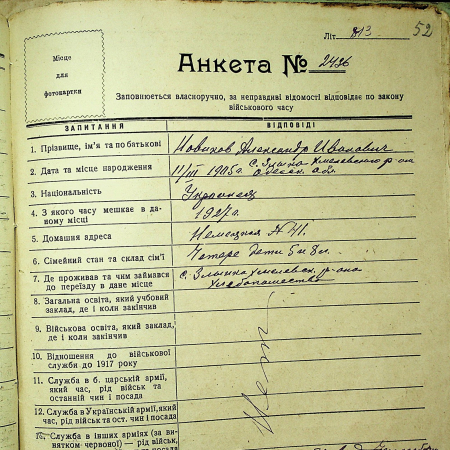 52
Літ. 813
Місце
для
фотокартки
Анкета № 2486
Заповнюється власноручно, за неправдиві відомості відповідає по закону
військового часу
ЗАПИТАННЯ ВІДПОВІДІ
1. Прізвище, ім'я та по батькові Новиков Александр Иванович
2. Дата та місце народження 11/III 1905 г. с. Злынка Хмелевского р-на
Одесск. обл.
3. Національність Украинец
4. З якого часу мешкає в да-
ному місці 1927 г.
5. Домашня адреса Немецкая № 41.
6. Сімейний стан та склад сім'ї дети 5 и 8 л.
7. Де проживав та чим займався
до переїзду в дане місце с. Злынка Хмелевск. р-она
Хлебопашество
8. Загальна освіта, який учбовий
заклад, де і коли закінчив
9. Військова освіта, який заклад,
де і коли закінчив
10. Відношення до військової
служби до 1917 року
11. Служба в б. царській армії,
який час, рід військ та
останній чин і посада
12. Служба в Українській армії, який
час, рід військ та ост. чин і посада
13. Служба в інших арміях (за ви-
нятком червоної) — рід військ,